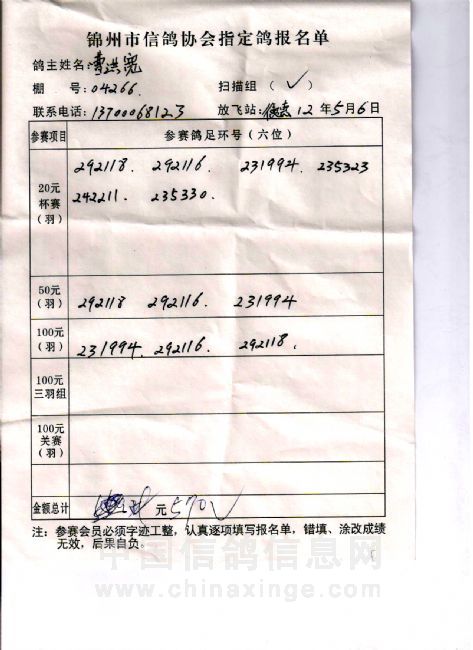 锦州市信鸽协会指定鸽报名单
鸽主姓名:曹洪宽
棚 号:04266. 扫描组(✓)
联系电话:13700068123 放飞站: 12年5月6日
参赛项目 参赛鸽足环号(六位)
20元杯赛(羽) 292118. 292116. 231994. 235323
242211. 235330.
50元(羽) 292118 292116. 231994
100元(羽) 231994. 292116. 292118.
100元三羽组
100元关赛(羽)
金额总计 元570✓
注:参赛会员必须字迹工整,认真逐项填写报名单,错填、涂改成绩
无效,后果自负。
中国信鸽信息网
www.chinaxinge.com